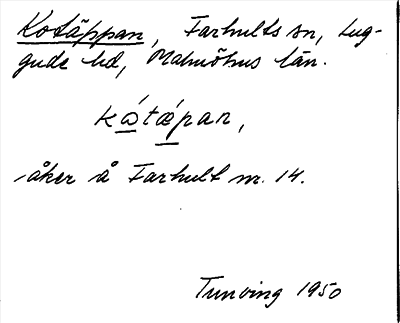 Kotäppan, Farhults sn, Lug-
gude hd, Malmöhus län.
kò́tæ̀pan,
åker å Farhult nr. 14.
Tunving 1950